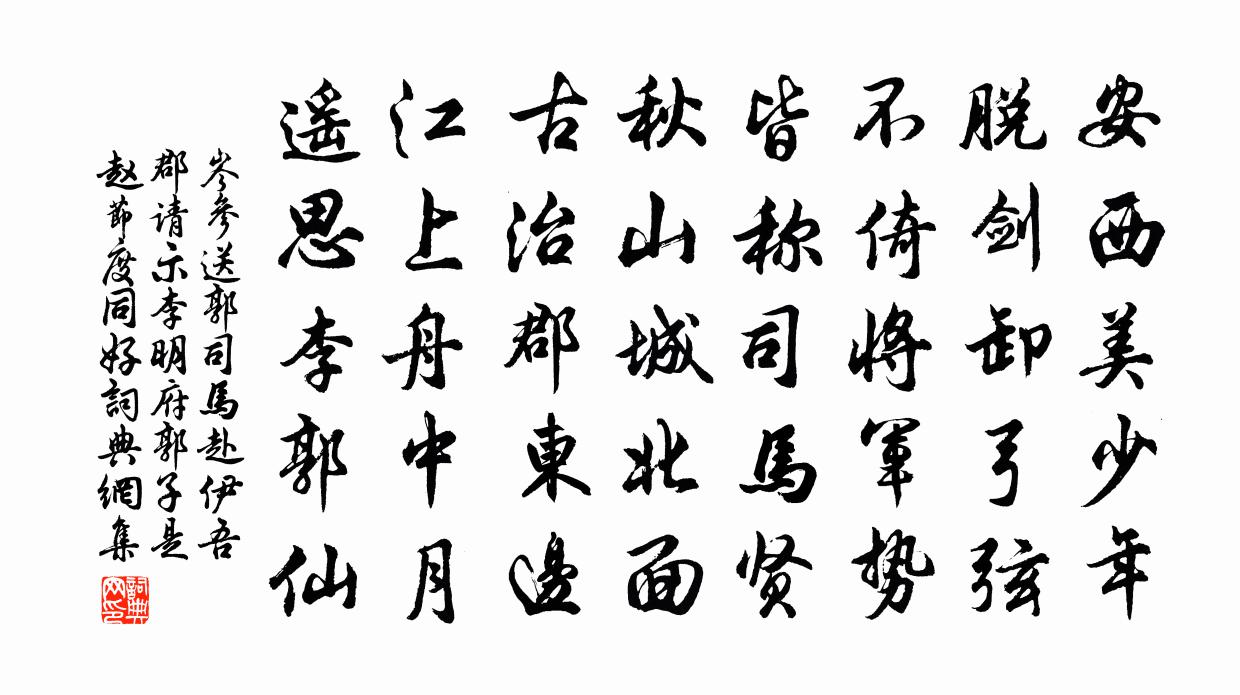 安西美少年
脱剑卸弓弦
不倚將軍勢
皆称司馬贤
秋山城北面
古治郡東邊
江上舟中月
遥思李郭仙
岑參送郭司馬赴伊吾
郡请示李明府郭子是
赵節度同好詞典網集